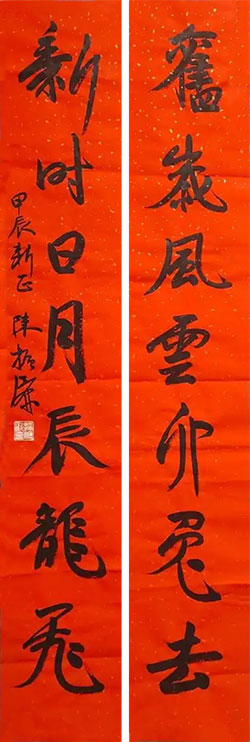 舊歲風雲卯兎去
新时日月辰龍飛
甲辰新正 陳振濂